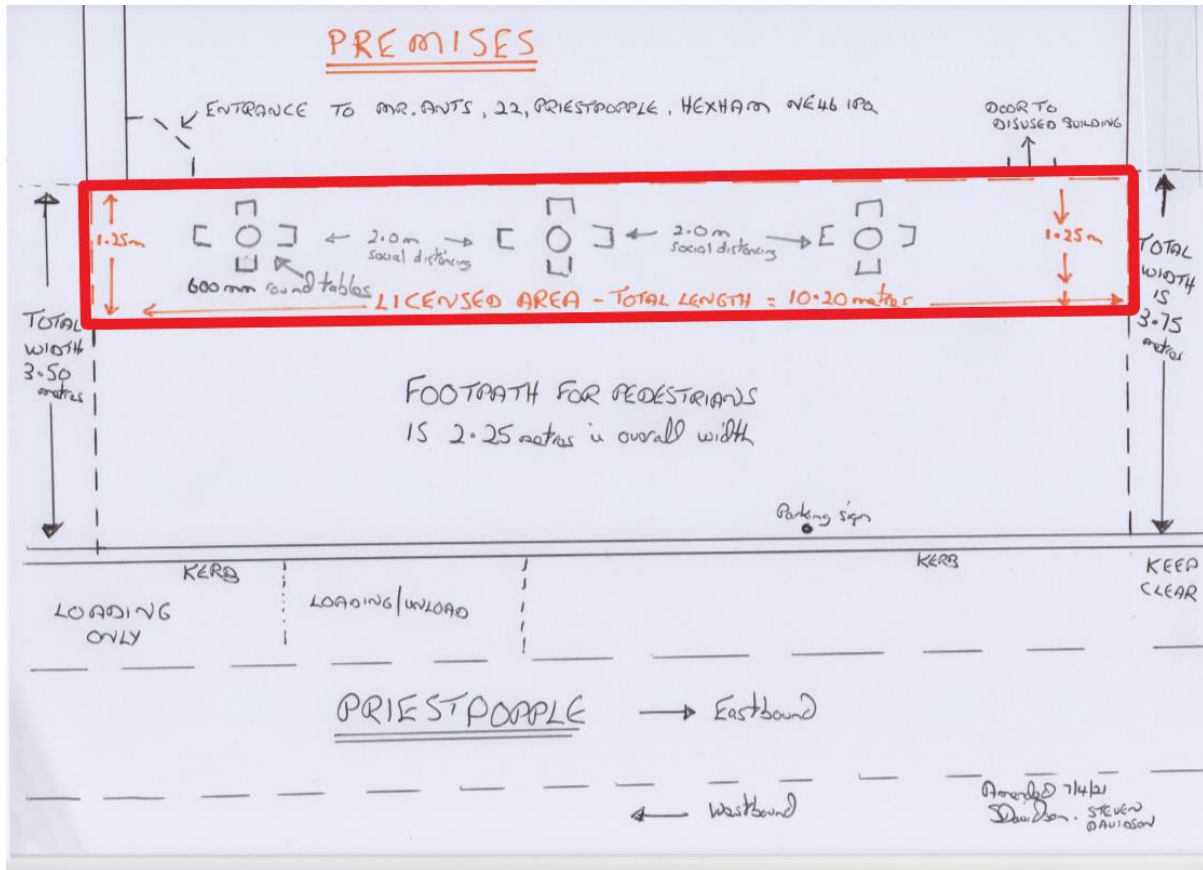 PREMISES
ENTRANCE TO MR. ANTS, 22, PRIESTPOPPLE, HEXHAM NE46 1PQ
DOOR TO
DISUSED BUILDING
1.25m
2.0m
social distancing
2.0m
social distancing
1.25m
600mm round tables
LICENSED AREA - TOTAL LENGTH = 10.20 metres
TOTAL
WIDTH
3.50
metres
TOTAL
WIDTH
IS
3.75
metres
FOOTPATH FOR PEDESTRIANS
IS 2.25 metres in overall width
Parking sign
KERB
KERB
KEEP
CLEAR
LOADING
ONLY
LOADING/UNLOAD
PRIESTPOPPLE → Eastbound
← Westbound
Amended 7/4/21
SDavidson. STEVEN
DAVIDSON